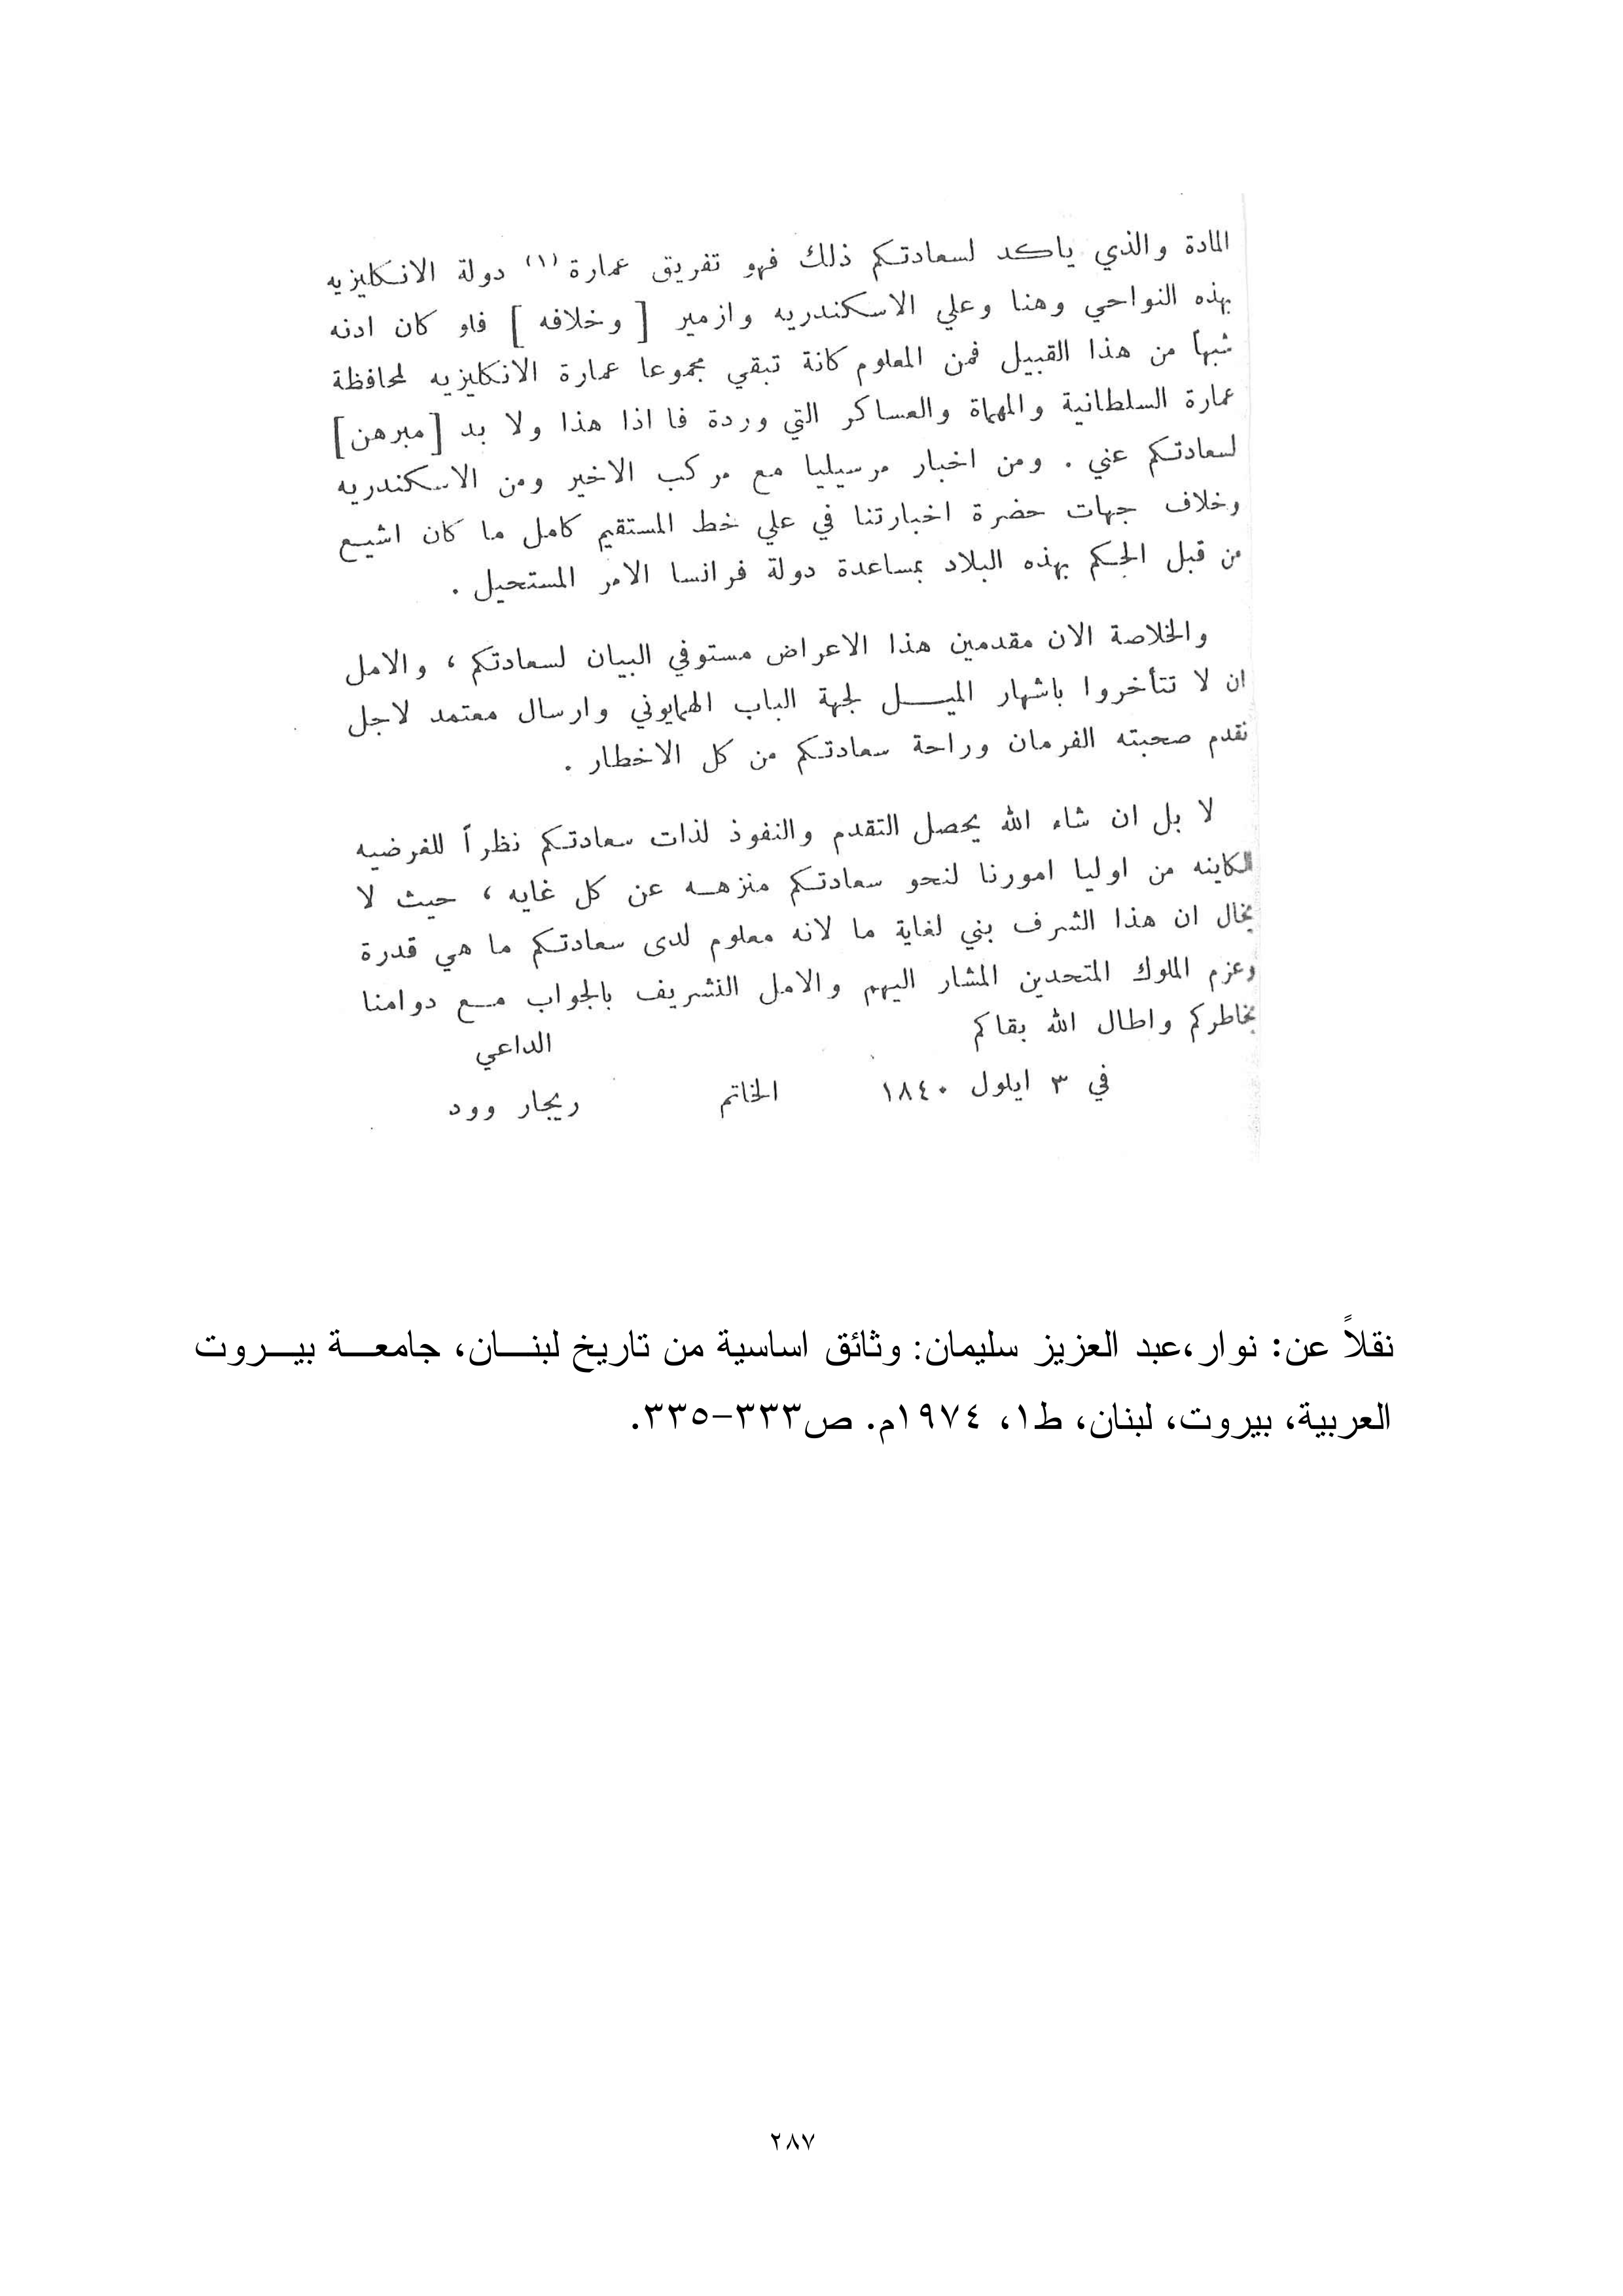 المادة والذي ياكد لسعادتكم ذلك فهو تفريق عمارة (١) دولة الانكليزيه
بهذه النواحي وهنا وعلي الاسكندريه وازمير [ وخلافه ] فلو كان ادنه
شبهاً من هذا القبيل فمن المعلوم كانة تبقي مجموعا عمارة الانكليزيه لمحافظة
عمارة السلطانية والمهماة والعساكر التي وردة فا اذا هذا ولا بد [مبرهن]
لسعادتكم عني . ومن اخبار مرسيليا مع مركب الاخير ومن الاسكندريه
وخلاف جهات حضرة اخبارتنا في علي خط المستقيم كامل ما كان اشيع
من قبل الحكم بهذه البلاد بمساعدة دولة فرانسا الامر المستحيل .
والخلاصة الان مقدمين هذا الاعراض مستوفي البيان لسعادتكم ، والامل
ان لا تتأخروا باشهار الميل لجهة الباب الهمايوني وارسال معتمد لاجل
نقدم صحبته الفرمان وراحة سعادتكم من كل الاخطار .
لا بل ان شاء الله يحصل التقدم والنفوذ لذات سعادتكم نظراً للفرضيه
الكاينه من اوليا امورنا لنحو سعادتكم منزهه عن كل غايه ، حيث لا
يخال ان هذا الشرف بني لغاية ما لانه معلوم لدى سعادتكم ما هي قدرة
وعزم الملوك المتحدين المشار اليهم والامل التشريف بالجواب مع دوامنا
بخاطركم واطال الله بقاكم
الداعي
في ٣ ايلول ١٨٤٠ الخاتم ريجار وود
نقلاً عن: نوار ،عبد العزيز سليمان: وثائق اساسية من تاريخ لبنان، جامعة بيروت
العربية، بيروت، لبنان، ط١، ١٩٧٤م. ص٣٣٣-٣٣٥.
٢٨٧